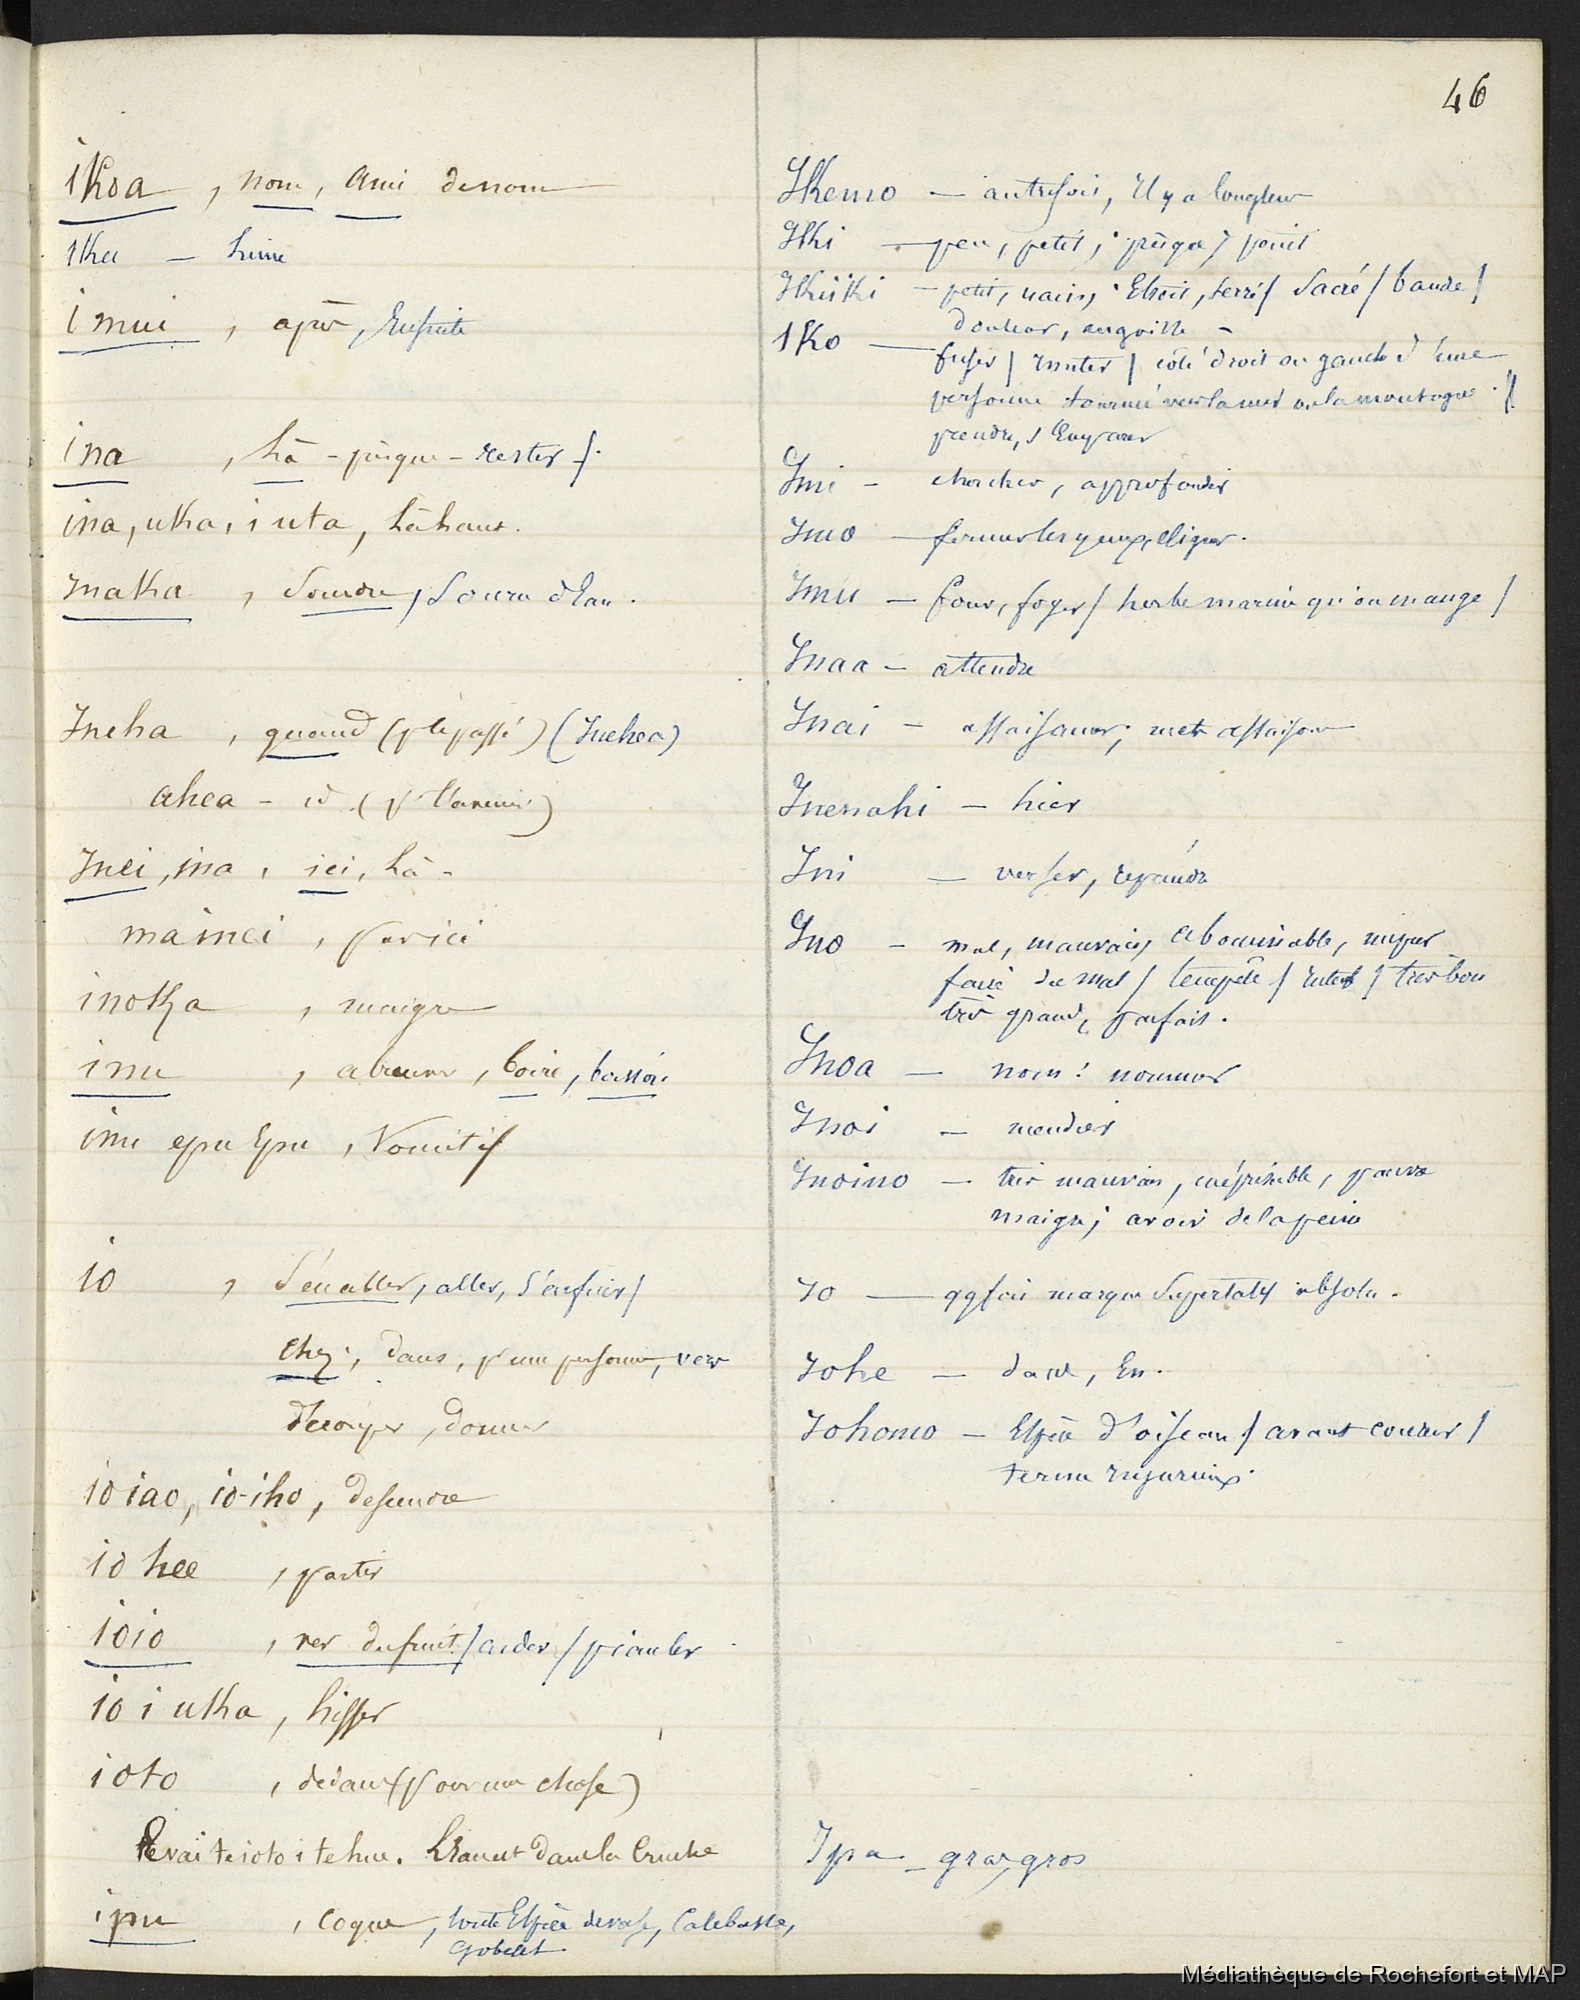 46
ikoa, nom, ami de nom
ika – lime
i mui, après, ensuite
ina, là – jusque – rester /.
ina, uka, i uta, là haut.
inaka, sourdre, source d'eau.
Ineha, quand (pr le passé) (Inehea)
ahea – id (pr l'avenir)
Inei, ina, ici, là –
mainei, par ici
inoka, maigre
inu, abreuver, boire, boisson
inu epu epu, Vomitif
io, s'en aller, aller, s'enfuir /
chez, dans, pr une personne, vers
donner
io iao, io-iho, descendre
io hee, partir
ioio, ver du fruit / aider / piauler
io i uka, hisser
ioto, dedans (pour une chose)
te vai te ioto i te hue. L'eau est dans la cruche
ipu, coque, toute Espèce de vase, Calebasse,
gobelet
Ikemo – autrefois, il y a longtems
Iki – peu, petit,
Ikiiki – petit, nain, Etroit, serré / Sacré / bande /
douleur, angoisse –
Iko – / côté droit ou gauche d'une
personne tourné vers la mer ou la montagne //
prendre, s'Emparer
Imi – chercher, approfondir
Imo – fermer les yeux, cligner.
Imu – four, foyer / herbe marine qu'on mange /
Inaa – attendre
Inai – assaisonner; mets assaison
Inenahi – hier
Ini – verser, répandre
Ino – mal, mauvais, abominable,
faire du mal / tempête / / très bon
très grand, parfait.
Inoa – nom: nommer
Inoi – mendier
Inoino – très mauvais, méprisable, pauvre
maigre; avoir de la peine
Io – qqfois marque Superlatif absolu.
Iohe – dans, En.
Iohomo – Espèce d'oiseau / avant coureur /
terme injurieux.
Ipa – gras, gros
Médiathèque de Rochefort et MAP